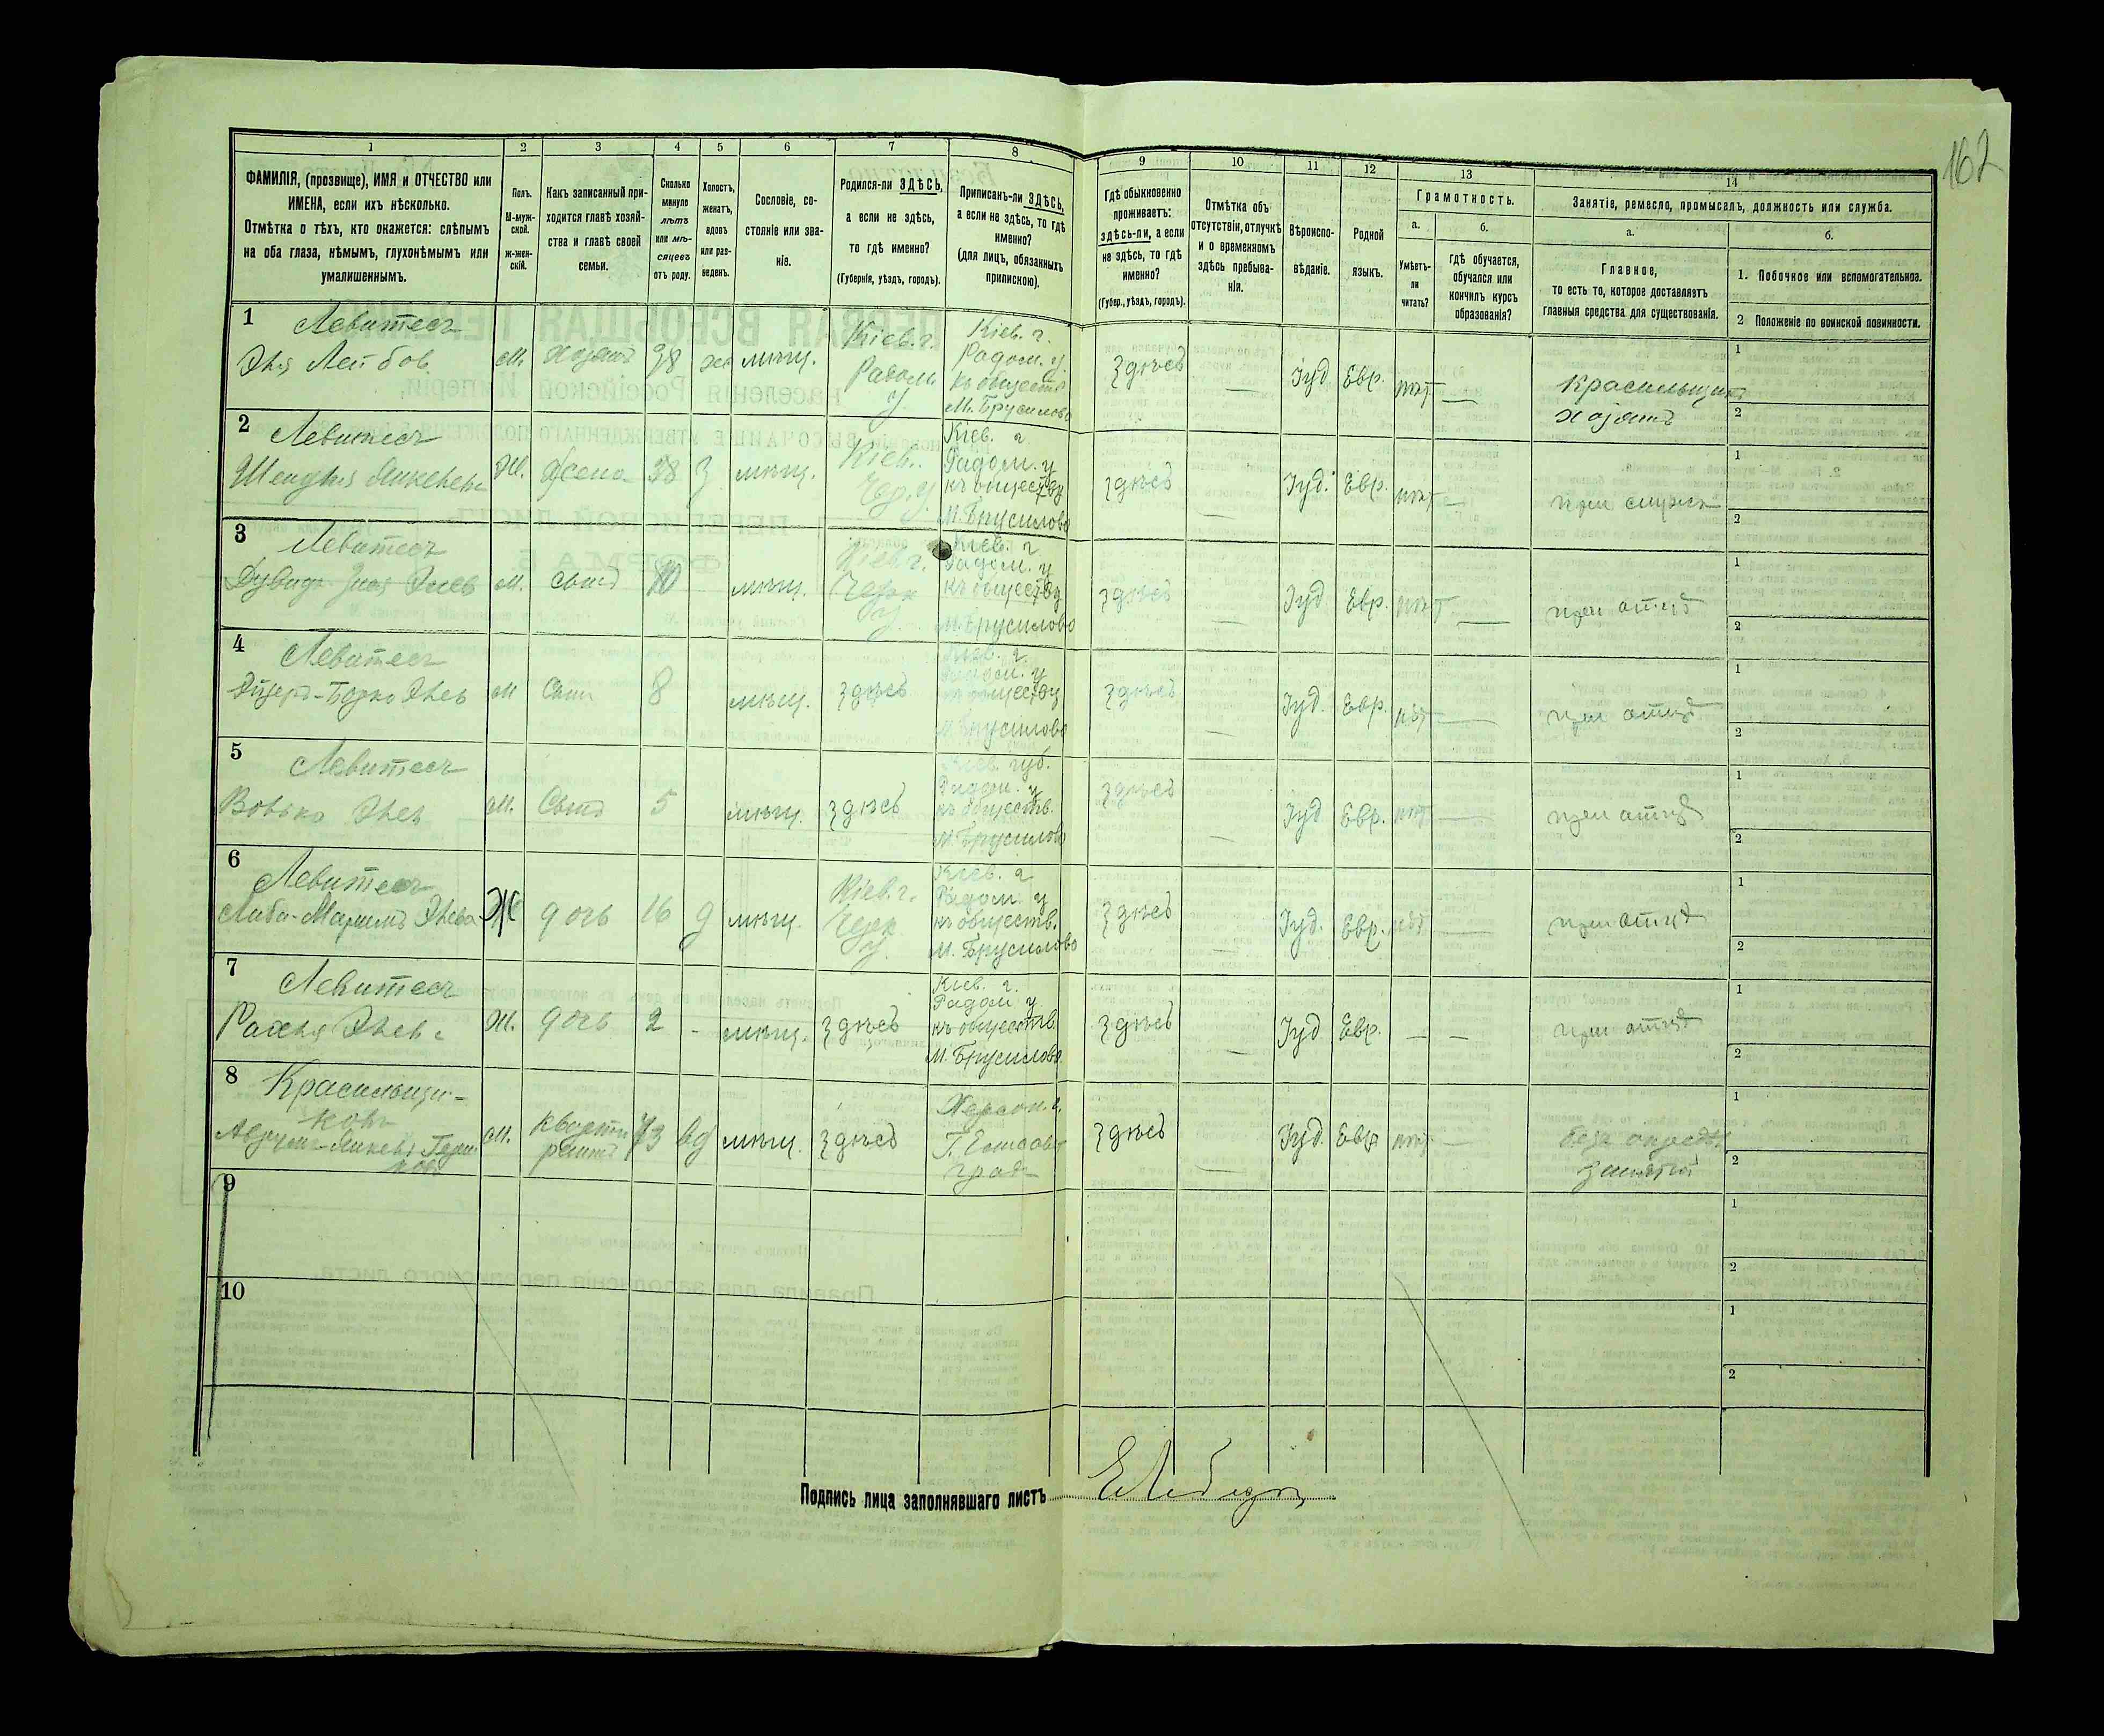 162
1 2 3 4 5 6 7 8 9 10 11 12 13 14
ФАМИЛІЯ, (прозвище), ИМЯ и ОТЧЕСТВО или
ИМЕНА, если ихъ нѣсколько.
Отмѣтка о тѣхъ, кто окажется: слѣпымъ
на оба глаза, нѣмымъ, глухонѣмымъ или
умалишеннымъ.
Полъ.
М-муж-
ской.
Ж-жен-
скій.
Какъ записанный при-
ходится главѣ хозяй-
ства и главѣ своей
семьи.
Сколько
минуло
лѣтъ
или мѣ-
сяцевъ
отъ роду.
Холостъ,
женатъ,
вдовъ
или раз-
веденъ.
Сословіе, со-
стояніе или зва-
ніе.
Родился-ли ЗДѢСЬ,
а если не здѣсь,
то гдѣ именно?
(Губернія, уѣздъ, городъ).
Приписанъ-ли ЗДѢСЬ,
а если не здѣсь, то гдѣ
именно?
(для лицъ, обязанныхъ
припискою).
Гдѣ обыкновенно
проживаетъ:
здѣсь-ли, а если
не здѣсь, то гдѣ
именно?
(Губер., уѣздъ, городъ).
Отмѣтка объ
отсутствіи, отлучкѣ
и о временномъ
здѣсь пребыва-
ніи.
Вѣроиспо-
вѣданіе.
Родной
языкъ.
Грамотность.
а.
Умѣетъ-
ли
читать?
б.
гдѣ обучается,
обучался или
кончилъ курсъ
образованія?
Занятіе, ремесло, промыселъ, должность или служба.
а.
Главное,
то есть то, которое доставляетъ
главныя средства для существованія.
б.
1. Побочное или вспомогательное.
2 Положеніе по воинской повинности.
1 Левитесъ
Лейбов. м. хозяинъ 38 ж мѣщ. Кіев. г. Радом. у.
Кіев. г.
Радом. у.
къ обществ.
М. Брусилово
здѣсь — Іуд. Евр. нѣт — Красильщикъ
хозяинъ
1
2
2 Левитесъ
Ж. Жена 38 З мѣщ. Кіев. Чер. у.
Кіев. г.
Радом. у
къ обществу
М. Брусилово
здѣсь — Іуд. Евр. нѣт — при мужѣ
1
2
3 Левитесъ
м. сынъ 10 мѣщ. Кіев. г. Черк. у.
Кіев. г.
Радом. у
къ обществу
М. Брусилово
здѣсь — Іуд. Евр. нѣт — при отцѣ
1
2
4 Левитесъ
м Сынъ 8 мѣщ. здѣсь
Кіев. г.
Радом. у
къ обществу
М. Брусилово
здѣсь — Іуд. Евр. нѣт — при отцѣ
1
2
5 Левитесъ
Вовько м. Сынъ 5 мѣщ. здѣсь
Кіев. губ.
Радом. у
къ обществ.
М. Брусилово
здѣсь — Іуд Евр. нѣт — при отцѣ
1
2
6 Левитесъ
Ж дочь 16 д мѣщ. Кіев. г. Черк. у.
Кіев. г
Радом. у
къ обществ.
М. Брусилово
здѣсь — Іуд. Евр. нѣт — при отцѣ
1
2
7 Левитесъ
Рахня Ж. дочь 2 - мѣщ. здѣсь
Кіев. г.
Радом у.
къ обществ.
М. Брусилово
здѣсь — Іуд Евр. — — при отцѣ
1
2
8 Красильщи-
ковъ
м. Кварти
рантъ 73 вд мѣщ. здѣсь
Херсон. г.
Г. Елисавет
градъ
здѣсь — Іуд. Евр нѣт — безъ опредѣл.
занятій
1
2
9
1
2
10
1
2
Подпись лица заполнявшаго листъ